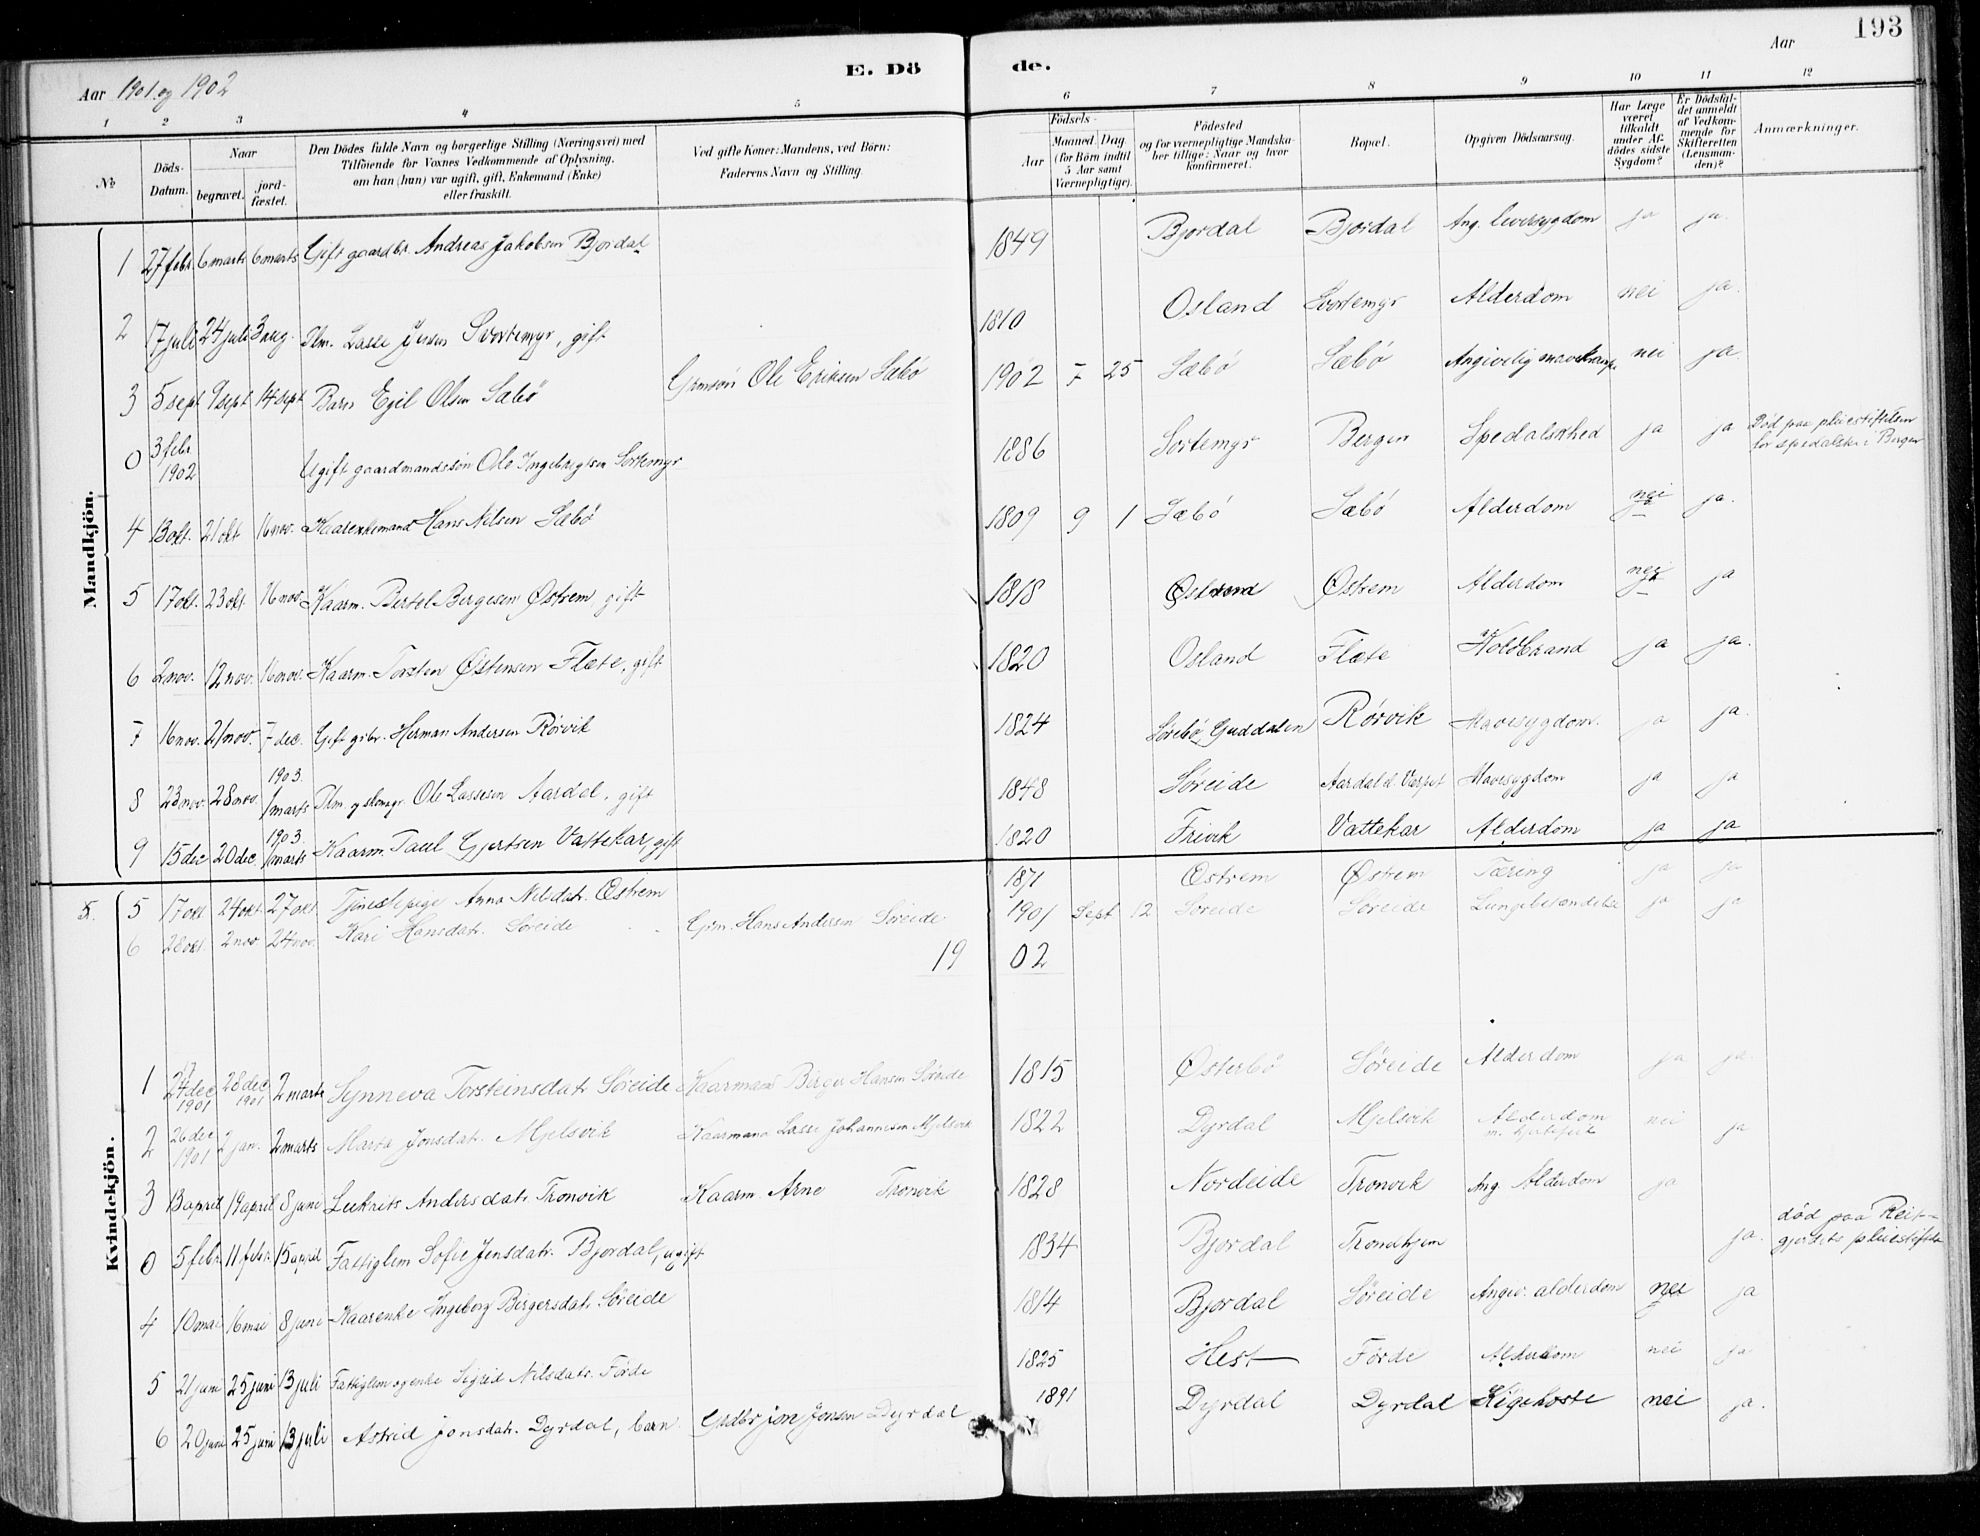 193
Aar 1901 og 1902 E. Dö de. Aar
1 2 3 4 5 6 7 8 9 10 11 12
No
Döds-Datum.
Naar
begravet.
jord-fæstet.
Den Dödes fulde Navn og borgerlige Stilling (Næringsvei) med
Tilföiende for Voxnes Vedkommende af Oplysning,
om han (hun) var ugift, gift, Enkemand (Enke)
eller fraskilt.
Ved gifte Koner: Mandens, ved Börn:
Faderens Navn og Stilling.
Födsels-
Aar
Maaned. Dag
(for Börn indtil
5 Aar samt
Værnepligtige).
Födested
og for værnepligtige Mandska-
ber tillige: Naar og hvor
konfirmeret.
Bopæl.
Opgiven Dödsaarsag.
Har Læge
været
tilkaldt
under Af-
dödes sidste
Sygdom?
Er Dödsfal-
det anmeldt
af Vedkom-
mende for
Skifteretten
(Lensman-
den)?
Anmærkninger.
Mandkjön.
1 27 febr. 6 marts 6 marts Gift gaardbr. Andreas Jakobsen Bjordal 1849 Bjordal Bjordal Ang. leversygdom ja ja.
2 17 juli 24 juli 3 aug. Flm. Lasse Jensen Svortemyr, gift 1810 Osland Svortemyr Alderdom nei ja.
3 5 sept 9 sept 14 sept Barn Egil Olsen Sæbø Grmsøn Ole Eriksen Sæbø 1902 7 25 Sæbø Sæbø Angivelig mavekrampe nei ja.
0 3 febr 1902 Ugift gaardmandssøn Ole Ingebrigtsen Sortemyr 1886 Sortemyr Bergen Spedalskhed ja ja Død paa pleiestiftelsen
for spedalske i Bergen
4 13 okt. 21 okt 16 nov. Kaarenkemand Hans Nilsen Sæbø 1809 9 1 Sæbø Sæbø Alderdom nei ja.
5 17 okt. 23 okt. 16 nov. Kaarm. Bertel Bergesen Østrem gift 1818 Østrem Alderdom nei ja
6 2 nov. 12 nov. 16 nov. Kaarm. Torsten Østensen Flæte, gift 1820 Osland Flæte Koldbrand ja ja.
7 16 nov. 21 nov. 7 dec. Gift grbr. Herman Andersen Rørvik 1824 Sørebø, Guddalen Rørvik Mavesygdom. ja ja.
8 23 nov. 28 nov. 1903 1 marts Flm. Ole Lassesen Aardal, gift 1848 Søreide Aardal Mavesygdom ja ja
9 15 dec 20 dec 1903. 1 marts Kaarm. Paul Gjertsen Vattekar, gift 1820 Trivik Vattekar Alderdom ja ja
Kvindekjön.
5 17 okt 24 okt. 27 okt. Tjenestepige Anna Nilsdatr. Østrem 1871 Østrem Østrem Tæring ja ja
6 28 okt. 2 nov 24 nov. Kari Hansdatr. Søreide Grm. Hans Andersen Søreide 1901 Sept 12 Søreide Søreide Lungebetændelse ja ja
19 02
1 24 dec 1901 28 dec 1901 2 marts Synneva Torsteinsdatr Søreide Kaarmand Birger Hansen 1815 Østerbø Søreide Alderdom ja ja.
2 26 dec 1901 2 jan. 2 marts Marta Jonsdatr. Mjelsvik Kaarmand Lasse Johannesen Mjelsvik 1822 Dyrdal Mjelsvik Alderdom nei ja
3 13 april 19 april 8 juni Lukrits Andersdatr. Tronvik Kaarm. Arne Tronvik 1828 Nordeide Tronvik Ang. Alderdom ja
0 5 febr. 11 febr. 15 april Fattiglem Sofie Jensdatr. Bjordal, ugift 1834 Bjordal Trondhjem ja. død paa Reit-
gjerdets pleiestiftelse
4 10 mai 16 mai 8 juni Kaarenke Ingeborg Birgersdatr. Søreide 1814 Bjordal Søreide Angiv. alderdom nei ja
5 21 juni 25 juni 13 juli Fattiglem og enke Sigrid Nilsdatr. Førde 1825 Hest Førde Alderdom nei ja
6 20 juni 25 juni 13 juli Astrid Jonsdatr. Dyrdal, barn Grdbr Jon Jensen Dyrdal 1891 Dyrdal Dyrdal Kigehoste nei ja.